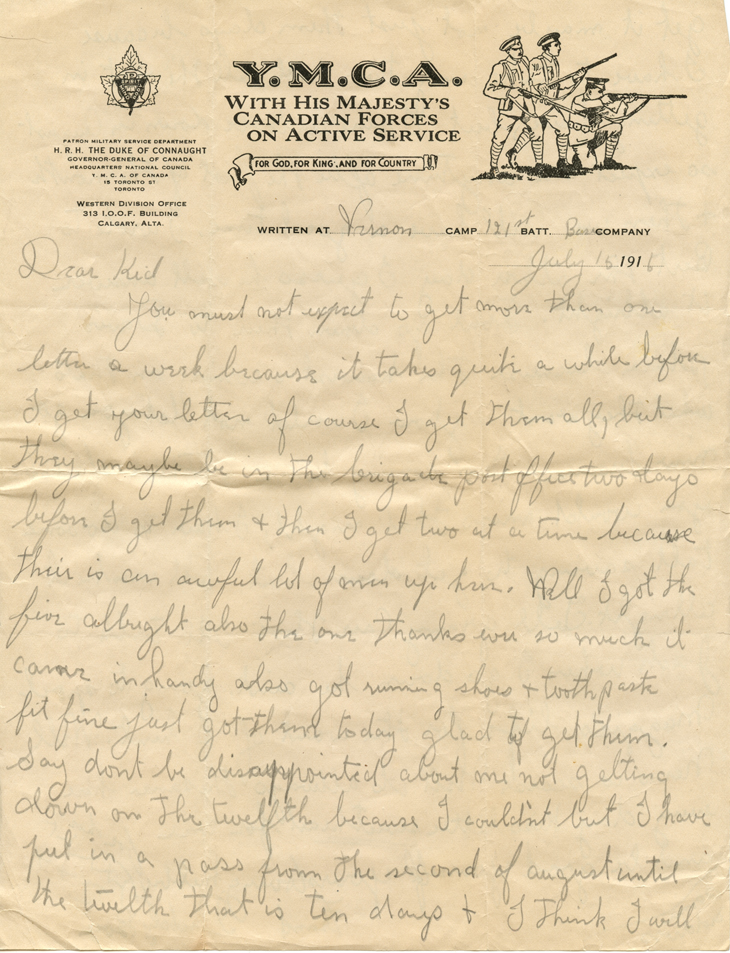 Y.M.C.A.
WITH HIS MAJESTY'S
CANADIAN FORCES
ON ACTIVE SERVICE
FOR GOD, FOR KING, AND FOR COUNTRY
PATRON MILITARY SERVICE DEPARTMENT
H. R. H. THE DUKE OF CONNAUGHT
GOVERNOR-GENERAL OF CANADA
HEADQUARTERS NATIONAL COUNCIL
Y. M. C. A. OF CANADA
15 TORONTO ST
TORONTO
WESTERN DIVISION OFFICE
313 I.O.O.F. BUILDING
CALGARY, ALTA.
WRITTEN AT Vernon CAMP 121st BATT. Base COMPANY
July 16 1916
Dear Kid
You must not expect to get more than one
letter a week because it takes quite a while before
I get your letter of course I get them all, but
they maybe be in the brigade post office two days
before I get them & then I get two at a time because
their is an awful lot of men up here. Well I got the
five allright also the one thanks so much it
came in handy also got runing shoes & tooth paste
fit fine just got them today glad to get them.
Say dont be disappointed about me not getting
down on the twelfth because I couldnt but I have
put in a pass from the second of august until
the twelth that is ten days & I think I will